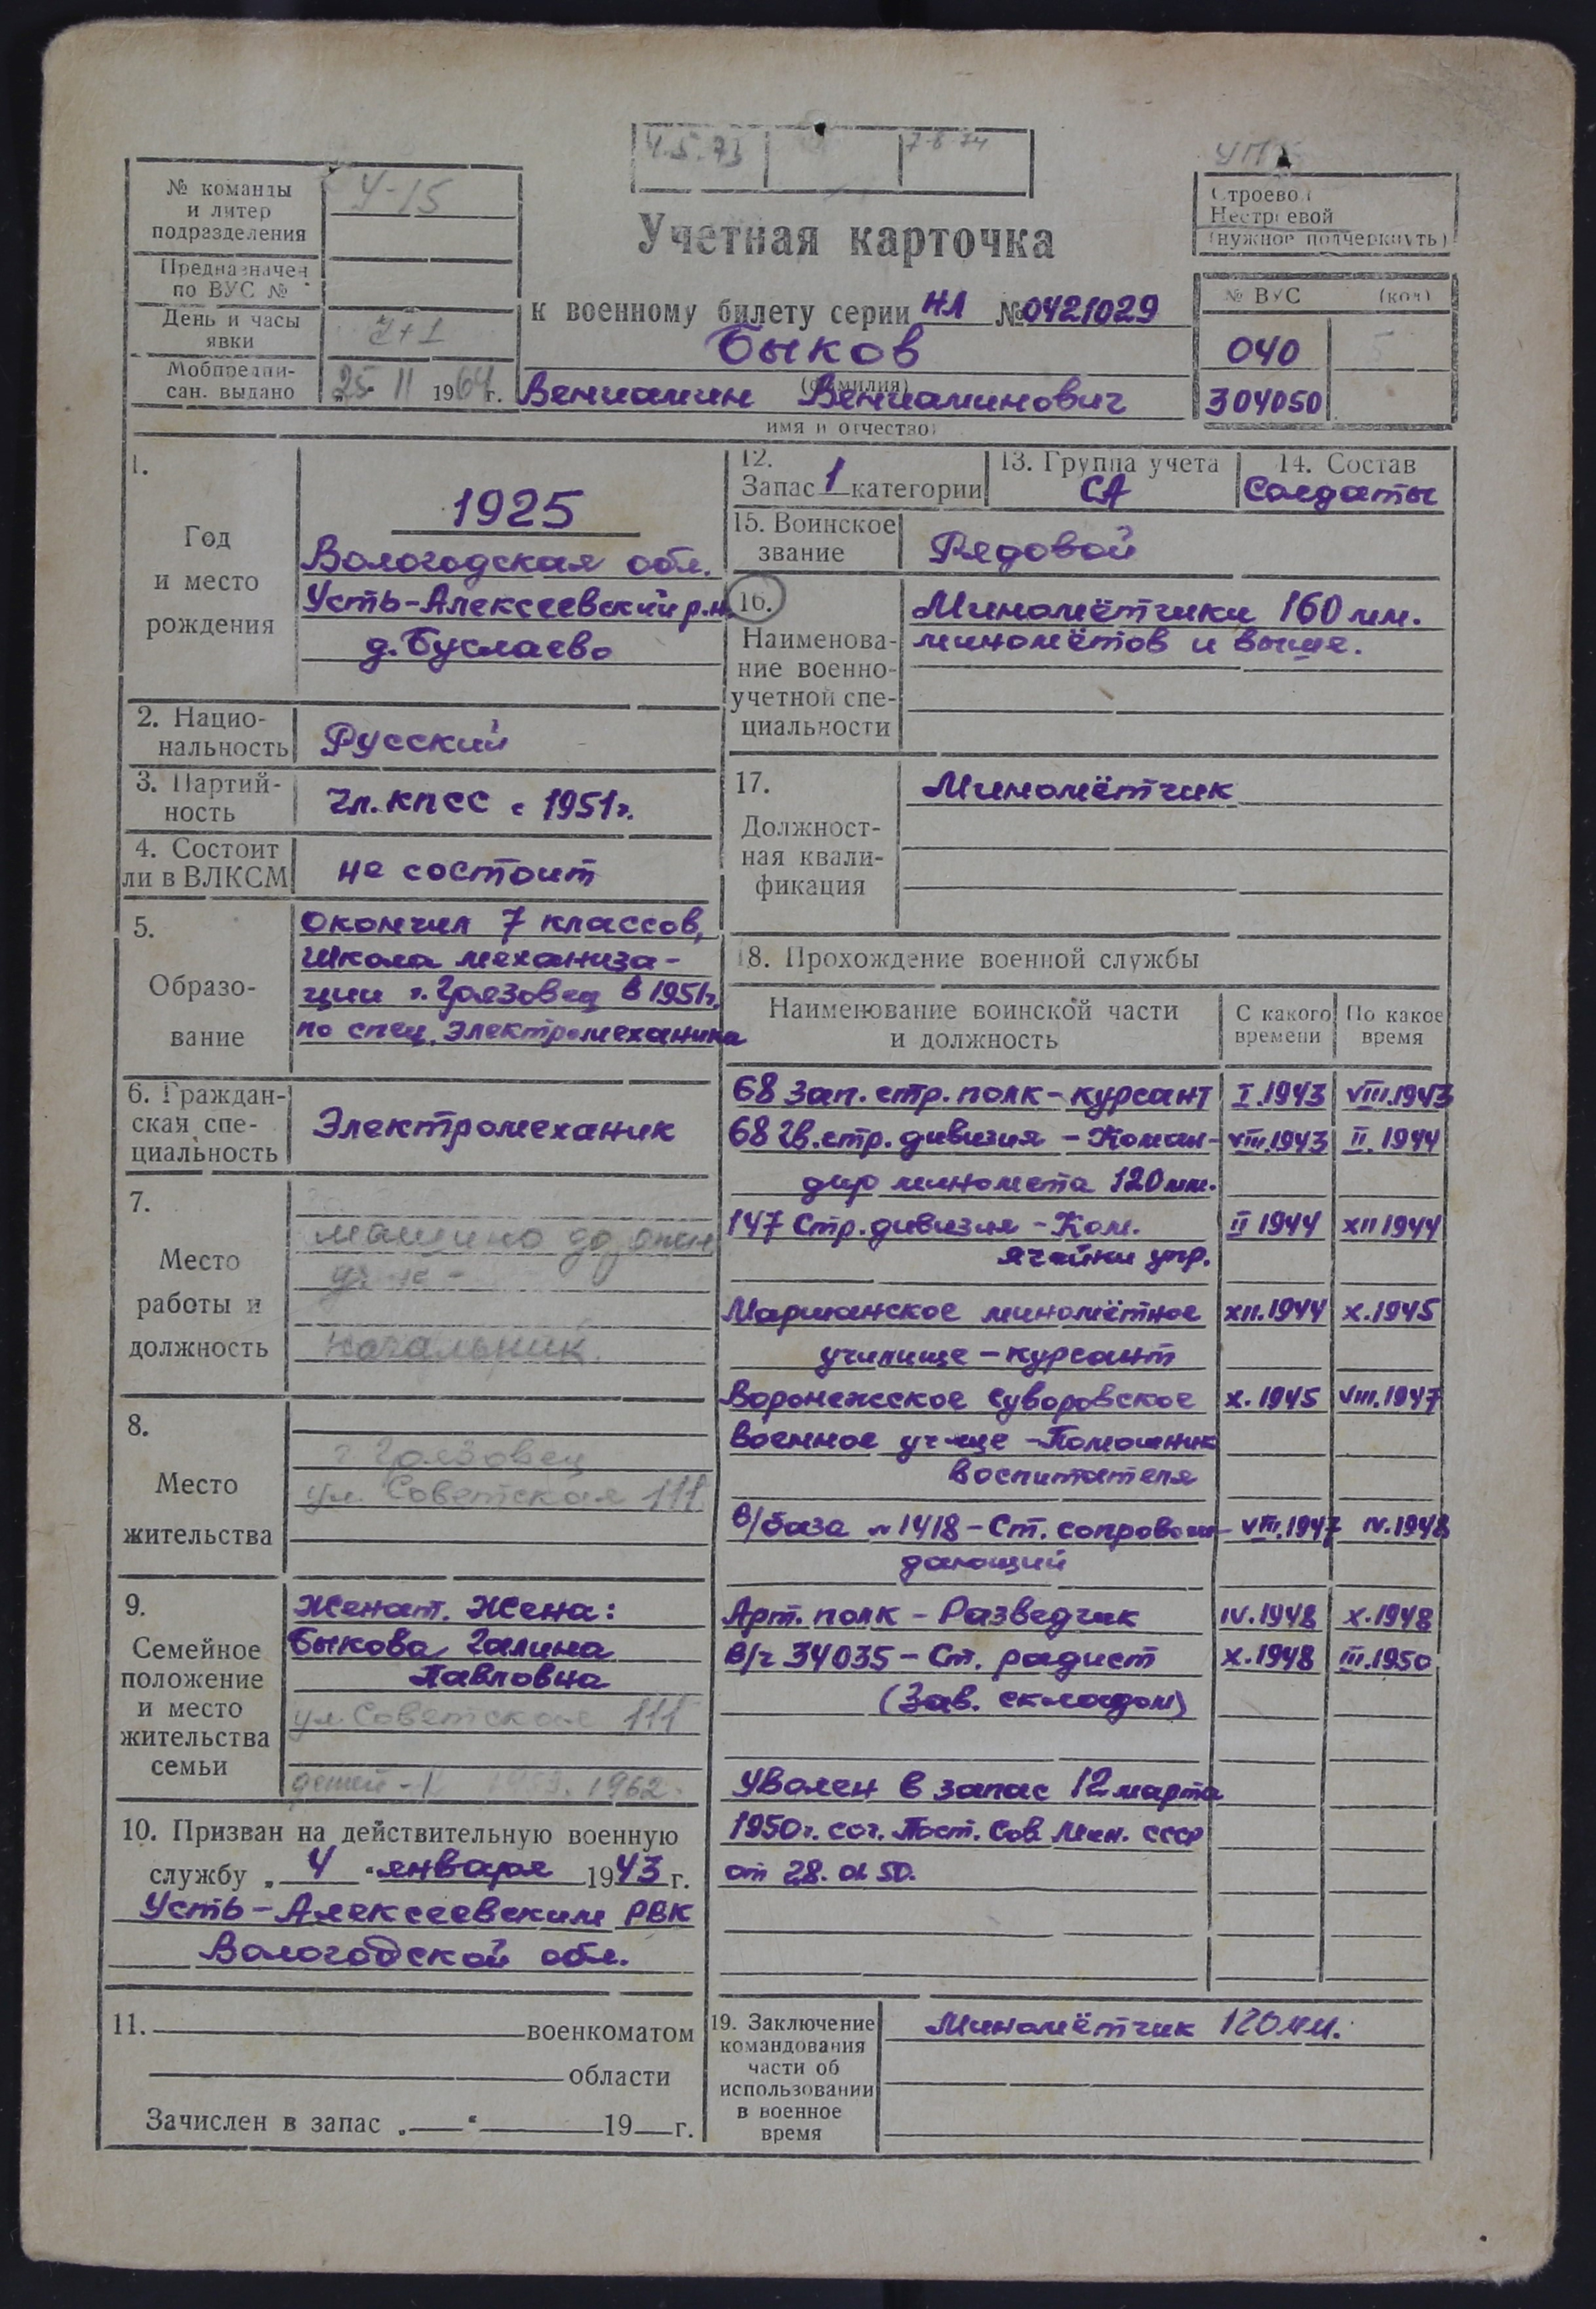 4.5.73
7-8 74
№ команды
и литер
подразделения
У-15
Предназначен
по ВУС №
День и часы
явки
Мобпредпи-
сан. выдано
„25“ II 1964г.
Учетная карточка
к военному билету серии НЛ №0421029
Быков
(фамилия)
Вениамин Вениаминович
имя и отчество)
Строевой
Нестроевой
(нужное подчеркнуть)
№ ВУС (код)
040
304050
1.
Год
и место
рождения
1925
Вологодская обл.
Усть-Алексеевский р.н.
д. Буслаево
2. Нацио-
нальность
Русский
3. Партий-
ность
Чл. КПСС с 1951г.
4. Состоит
ли в ВЛКСМ
не состоит
5.
Образо-
вание
Окончил 7 классов,
школа механиза-
ции г. Грязовец в 1951г.
по спец. электромеханика
6. Граждан-
ская спе-
циальность
Электромеханик
7.
Место
работы и
должность
начальник.
8.
Место
жительства
г Грязовец
ул. Советская 111
9.
Семейное
положение
и место
жительства
семьи
Женат. Жена:
Быкова Галина
Павловна
ул. Советская 111
детей - 1962.
10. Призван на действительную военную
службу „4“ января 1943г.
Усть-Алексеевским РВК
Вологодской обл.
11. военкоматом
области
Зачислен в запас „ “ 19 г.
12.
Запас 1 категории
13. Группа учета
СА
14. Состав
Солдаты
15. Воинское
звание
Рядовой
16.
Наименова-
ние военно-
учетной спе-
циальности
Миномётчики 160 мм.
миномётов и выше.
17.
Должност-
ная квали-
фикация
Миномётчик
18. Прохождение военной службы
Наименование воинской части
и должность
С какого
времени
По какое
время
68 зап. стр. полк - курсант I.1943 VIII.1943
68 гв. стр. дивизия - Коман- VIII.1943 II.1944
дир миномета 120 мм.
147 Стр. дивизия - Ком. II 1944 XII 1944
ячейки упр.
Маршанское миномётное XII.1944 X.1945
училище - курсант
Воронежское Суворовское X.1945 VIII.1947
военное уч-ще - Помошник
воспитателя
В/база №1418 - Ст. сопровож- VIII.1947 IV.1948
дающий
Арт. полк - Разведчик IV.1948 X.1948
В/ч 34035 - Ст. радист X.1948 III.1950
(Зав. складом)
Уволен в запас 12 марта
1950г. сог. Пост. Сов. Мин. СССР
от 28. 01. 50.
19. Заключение
командования
части об
использовании
в военное
время
Миномётчик 120 мм.